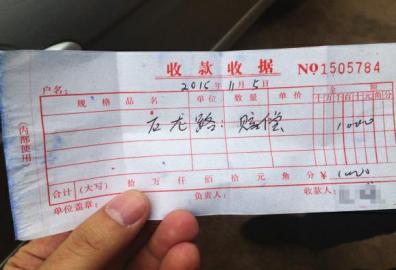 收款收据 NO 1505784
户名： 2015年11月5日
规格品名 单位 数量 单价 金额
十万千百十元角分
石龙路：赔偿 1000
（内部使用）
合计（大写） 拾 万 仟 佰 拾 元 角 分 ￥ 1000
单位盖章： 负责人： 收款人：